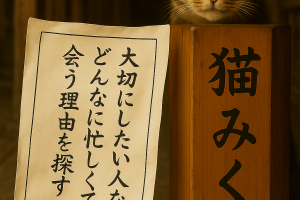 大切にしたい人な
どんなに忙しくて
会う理由を探す
猫みく